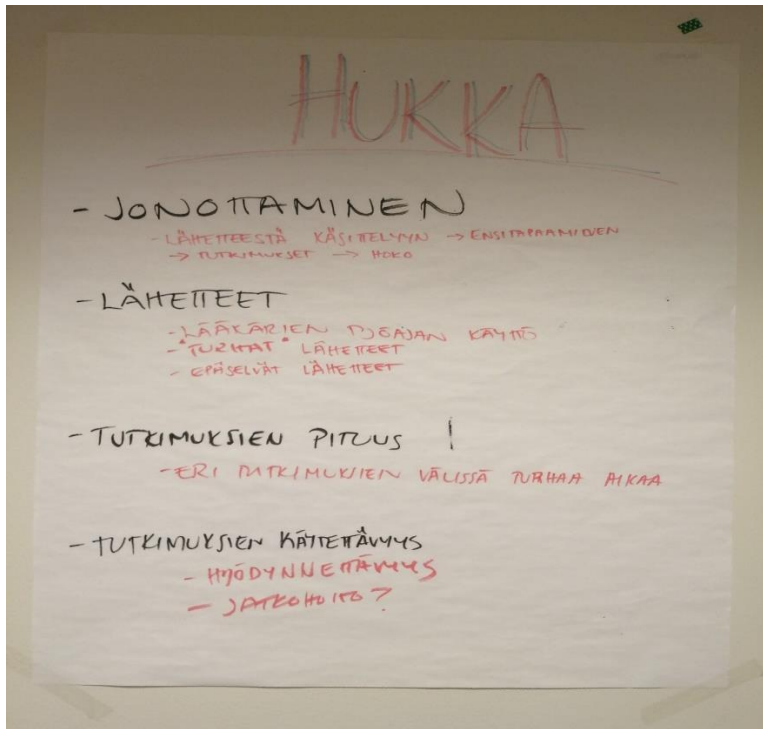 HUKKA
- JONOTTAMINEN
- LÄHETTEESTÄ KÄSITTELYYN → ENSITAPAAMINEN
→ TUTKIMUKSET → HOKO
- LÄHETTEET
- LÄÄKÄRIEN TYÖAJAN KÄYTTÖ
- "TURHAT" LÄHETTEET
- EPÄSELVÄT LÄHETTEET
- TUTKIMUKSIEN PITUUS !
- ERI TUTKIMUKSIEN VÄLISSÄ TURHAA AIKAA
- TUTKIMUKSIEN KÄYTETTÄVYYS
- HYÖDYNNETTÄVYYS
- JATKOHOITO?